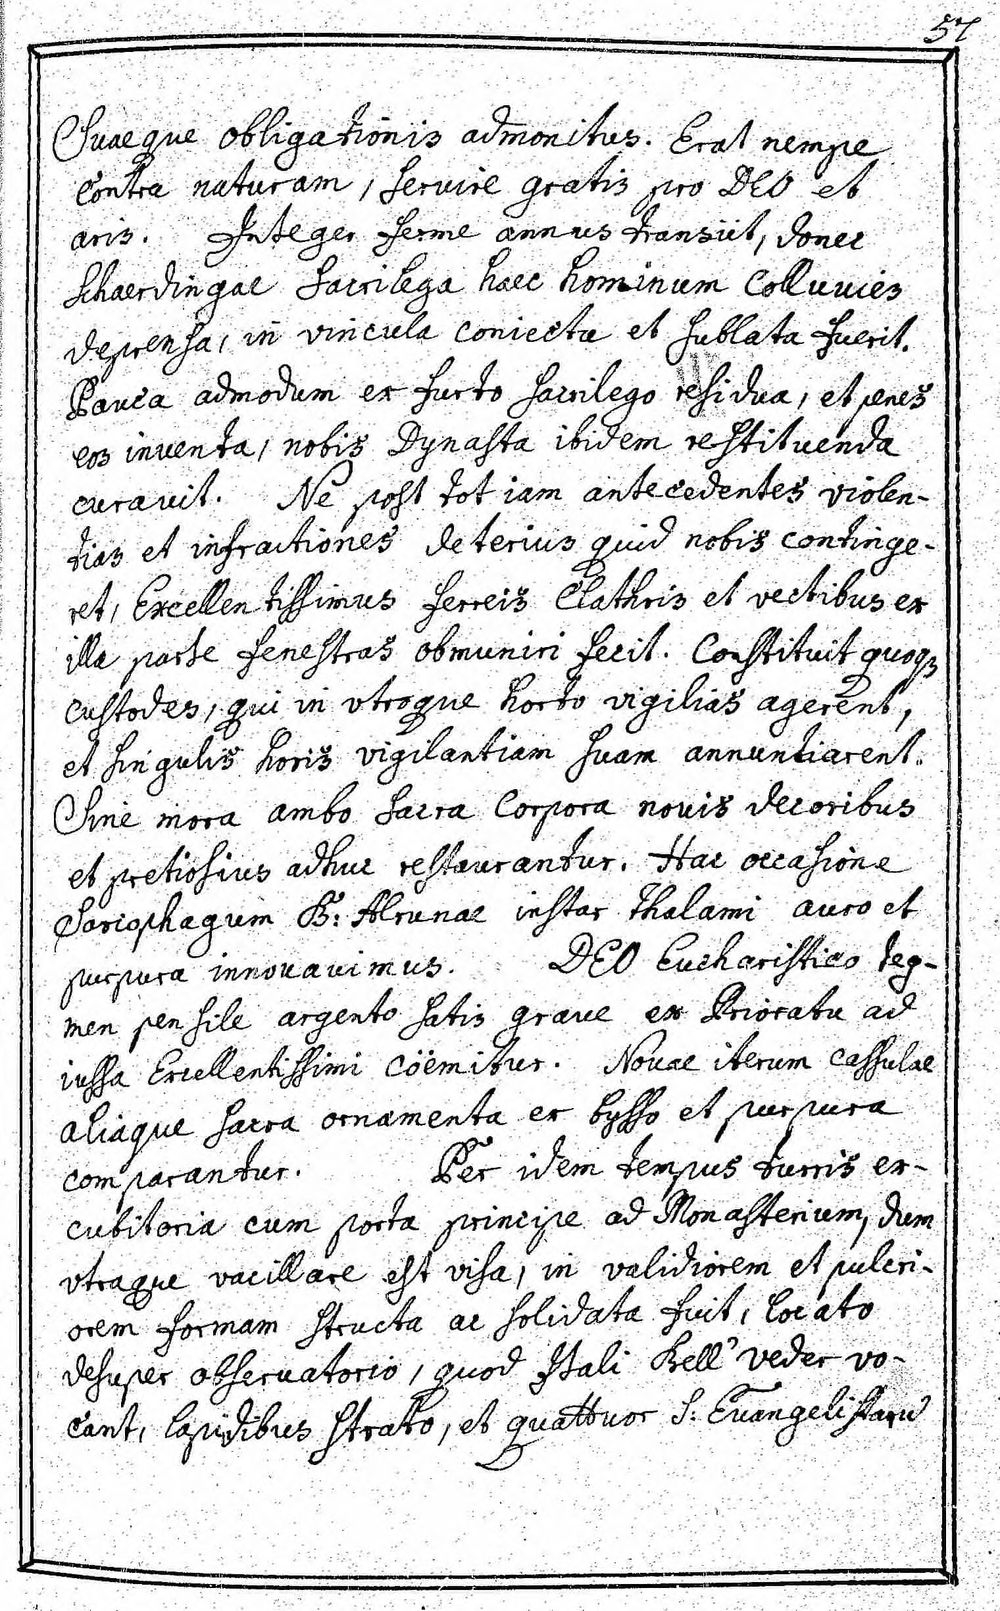 57
Suaeque obligationis admonitus. Erat nempe
contra naturam, servire gratis pro DEO et
aris. Integer ferme annus transiit, donec
Schaerdingae Sacrilega haec hominum Colluuies
deprensa, in vincula coniecta et sublata fuerit.
Pauca admodum ex furto sacrilego residua, et penes
eos inuenta, nobis Dynasta ibidem restituenda
curauit. Ne post tot iam antecedentes violen-
tias et infractiones deterius quid nobis continge-
ret, Excellentissimus ferreis Clathris et vectibus ex
illa parte fenestras obmuniri fecit. Constituit quoq3
custodes, qui in vtroque horto vigilias agerent,
et singulis horis vigilantiam suam annuntiarent.
Sine mora ambo sacra Corpora nouis decoribus
et pretiosius adhuc restaurantur. Hac occasione
Sarcophagum B: Alrunae instar thalami auro et
purpura innouauimus. DEO Eucharistico teg-
men pensile argento satis graue ex Prioratu ad
iussa Excellentissimi cöemitur. Nouae iterum cassulae
aliaque sacra ornamenta ex bysso et purpura
comparantur. Per idem tempus turris ex-
cubitoria cum porta principe ad Monasterium, dum
vtraque vacillare est visa, in validiorem et pulcri-
orem formam structa ac solidata fuit, locato
desuper obseruatorio, quod Itali Bell' veder vo-
cant, lapidibus strato, et quattuor S: Euangelistarū